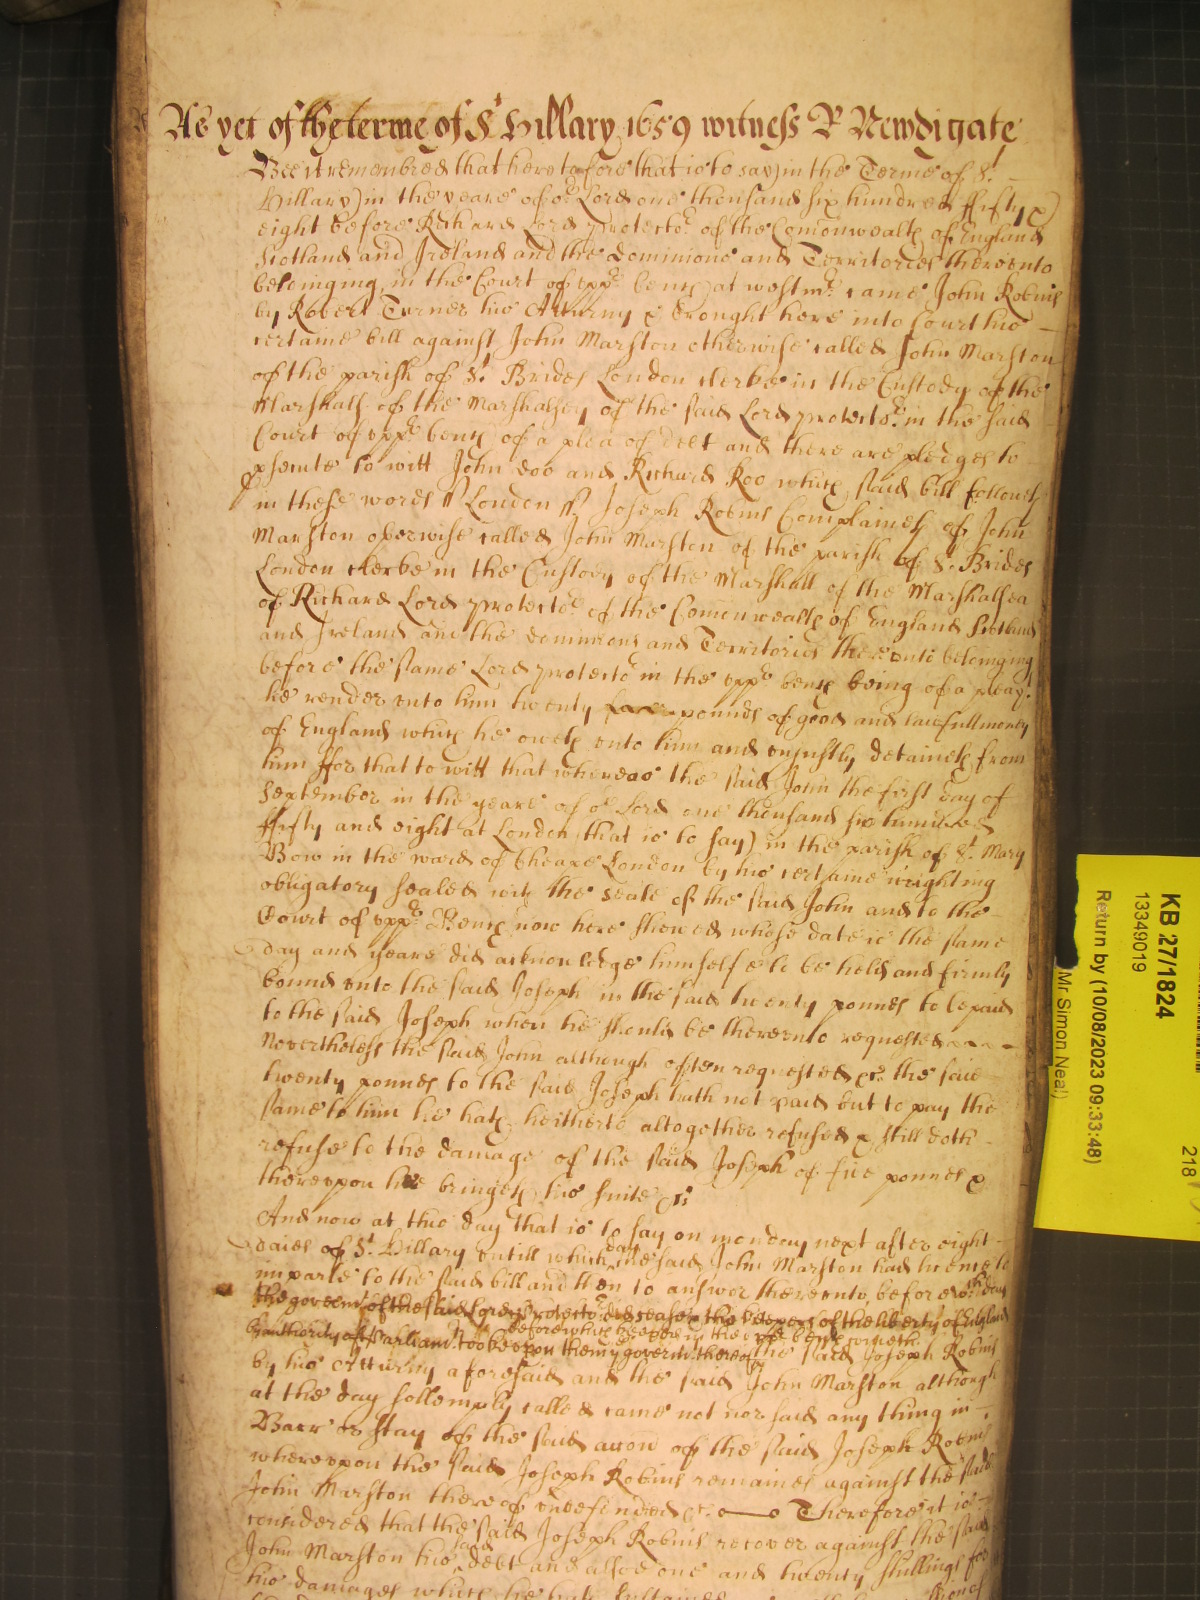 As yet of the terme of St Hillary 1659 witness R Newdigate
Bee it remembred that heretofore that is to say in the Terme of St
Hillary in the yeare of or Lord one thousand six hundred ffifty &
eight before Richard Lord Protector of the Comonwealth of England
Scotland and Ireland and the dominions and Territories thereunto
belonging in the Court of upper bench at westmr came John Robins
by Robert Turner his Atturny & brought here into Court his
certaine bill against John Marston otherwise called John Marston
of the parish of St Brides London clerke in the Custody of the
Marshall of the Marshalsey of the said Lord protector in the said
Court of uppr bench of a plea of debt and there are pledges to
psecute to witt John doo and Richard Roo which said bill followes
in these words ss London ss Joseph Robins Complaines of John
Marston otherwise called John Marston of the parish of St Brides
London clerke in the Custody of the Marshall of the Marshalsea
of Richard Lord protector of the Comonwealth of England Scotland
and Ireland and the dominions and Territories thereunto belonging
before the same Lord protector in the uppr bench being of a plea yt
he render unto him twenty pounds of good and lawfull money
of England which he oweth unto him and unjustly detaineth from
him ffor that to witt that whereas the said John the first day of
September in the yeare of or Lord one thousand six hundred
ffifty and eight at London (that is to say) in the parish of St Mary
Bow in the ward of Cheape London by his certaine wrighting
obligatory sealed with the seale of the said John and to the
Court of uppr Bench now here shewed whose date is the same
day and yeare did acknowledge himselfe to be held and firmly
bound unto the said Joseph in the said twenty pounds to be paid
to the said Joseph when he should be thereunto requested
Nevertheless the said John although often requested &c the said
twenty pounds to the said Joseph hath not paid but to pay the
same to him he hath heitherto altogether refused & still doth
refuse to the damage of the said Joseph of five pounds &
thereupon hee bringeth his suite &c
And now at this day that is to say on monday next after eight
daies of St Hillary untill which day the said John Marston had licence to
imparle to the said bill and then to answer thereunto before wch day
the govermt of the said Lord Protector did cease & the keepers of the liberty of England
by authority of Parliamt tooke upon them ye govermt thereof
before which keepers in the uppr bench cometh
the said Joseph Robins
by his Atturny aforesaid and the said John Marston although
at the day sollemply called came not nor said any thing in
Barr or stay of the said accon of the said Joseph Robins
whereupon the said Joseph Robins remaines against the said
John Marston thereof undefended &c Therefore it is
considered that the said Joseph Robins recover against the said
John Marston his said debt and alsoe one and twenty shillings for
his damages which he hath sustained
KB 27/1824
13349019
Return by (10/08/2023 09:33:48)
Mr Simon Neal
218